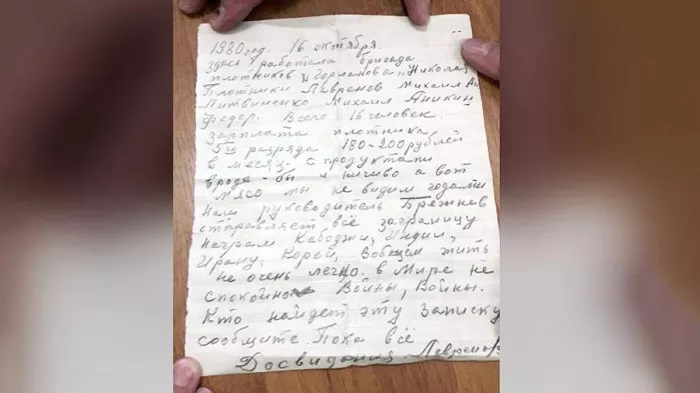 1980год. 16 октября.
здесь работала бригада
плотников Николая
Плотники Лавренов Михаил
Литвиненко Михаил Аникин
Федер. Всего 16 человек.
зарплата плотника
5го разряда 180-200рублей
в месяц. с продуктами
вроде-бы и ничиво а вот
мясо мы не видим годами
нам руководитель Брежнев
отправляет всё заграницу
Неграм Кабоджи, Индии,
Ирану. Корей, Вобщем жить
не очень легко. в Мире не
спокойно Войны, Войны.
Кто найдет эту Записку
сообщите. Пока всё
Досвидания.